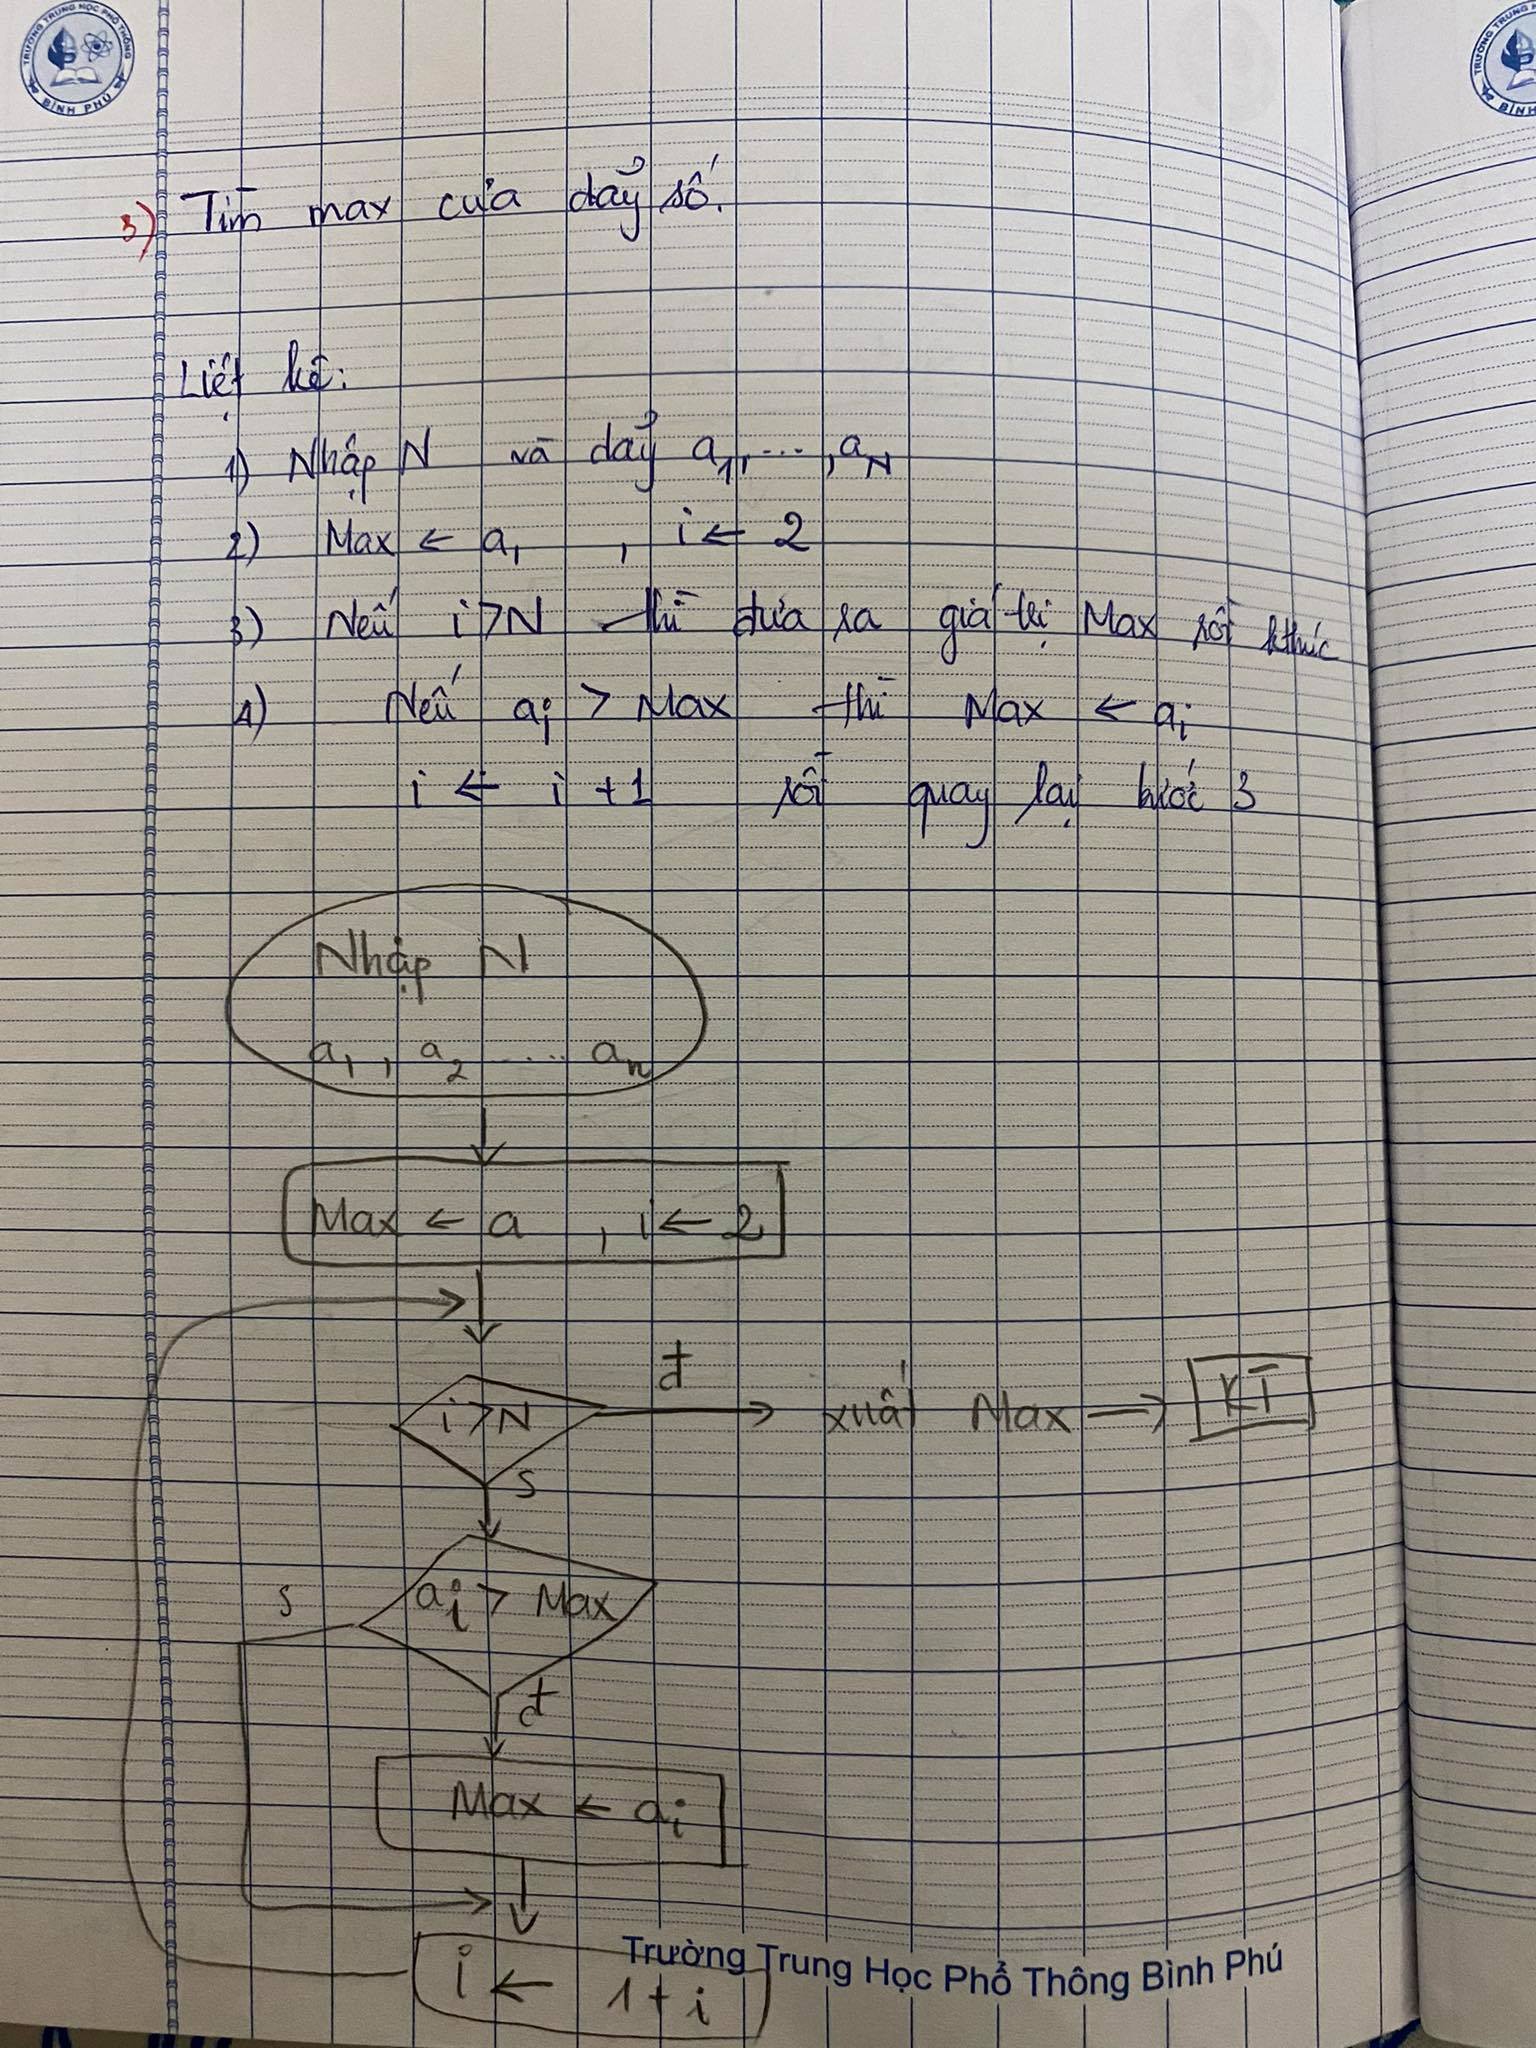 TRƯỜNG TRUNG HỌC PHỔ THÔNG
BÌNH PHÚ
3) Tìm max của dảy số.
Liệt kê:
1) Nhập N và dảy a₁, ... , a_N
2) Max ← a₁ , i ← 2
3) Nếu i > N thì đưa ra giá trị Max rồi kthúc
4) Nếu aᵢ > Max thì Max ← aᵢ
i ← i + 1 rồi quay lại bước 3
Nhập N
a₁ , a₂ ..... aₙ
Max ← a , i ← 2
đ
i > N
xuất Max → KT
s
aᵢ > Max
s
đ
Max ← aᵢ
i ← 1 + i
Trường Trung Học Phổ Thông Bình Phú